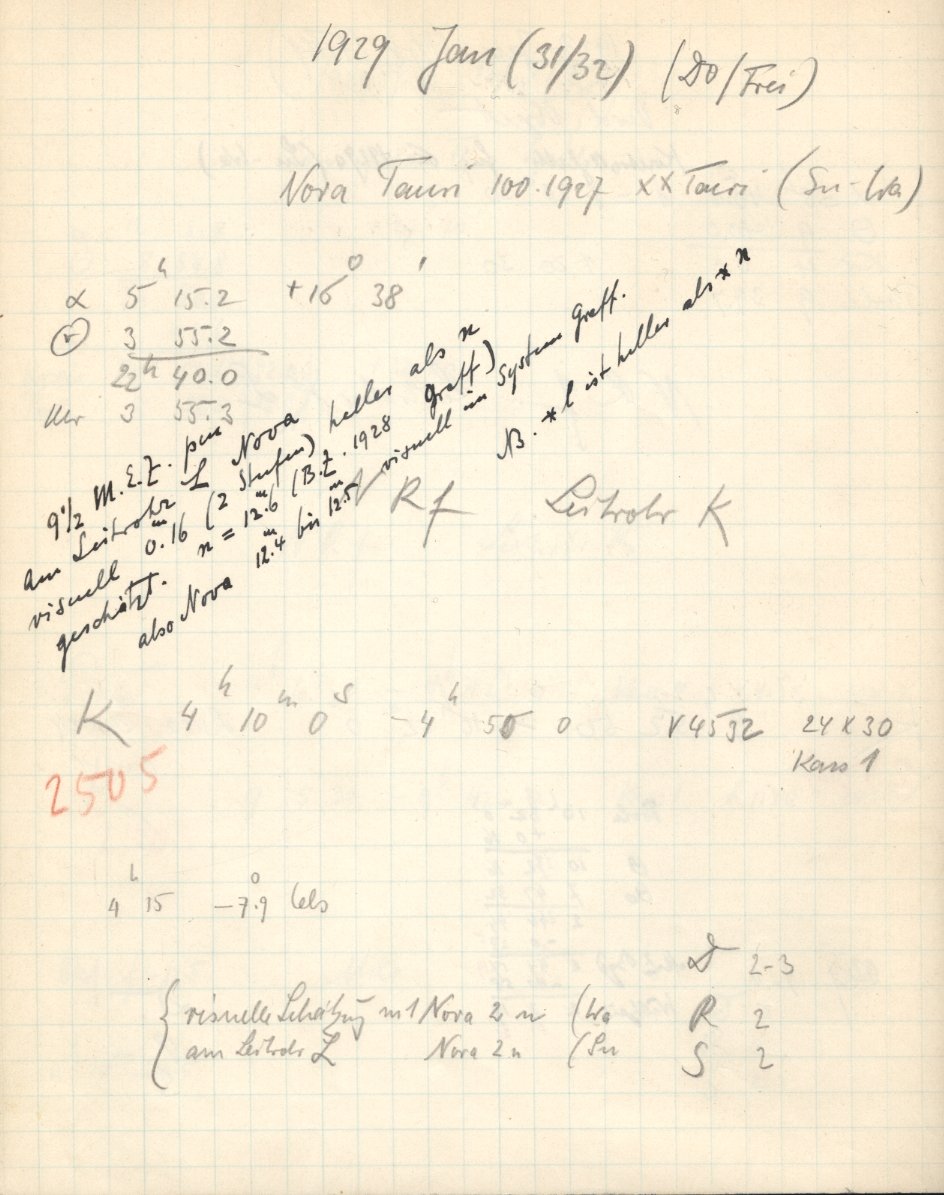 1929 Jan (31/32) (Do/Frei)
Nova Tauri 100.1927 XX Tauri (Su-Wa)
α 5h 15.2 +16° 38'
3 55.2
22h 40.0
Uhr 3 55.3
9 1/2 M.E.Z. pm
am Leitrohr L Nova
visuell 0.m16 (2 Stufen) heller als n
geschätzt. n = 12.m6 (B.Z. 1928 Graff)
also Nova 12.m4 bis 12.m5 visuell im System Graff.
NB. * l ist heller als * n
V Rf Leitrohr K
K 4h 10m 0s - 4h 50 0 V4532 24 X 30
Kass 1
2505
4h 15 -7.°9 Cels
D 2-3
visuelle Schätzung mit Nova 2 n (Wa R 2
am Leitrohr L Nova 2 n (Su S 2